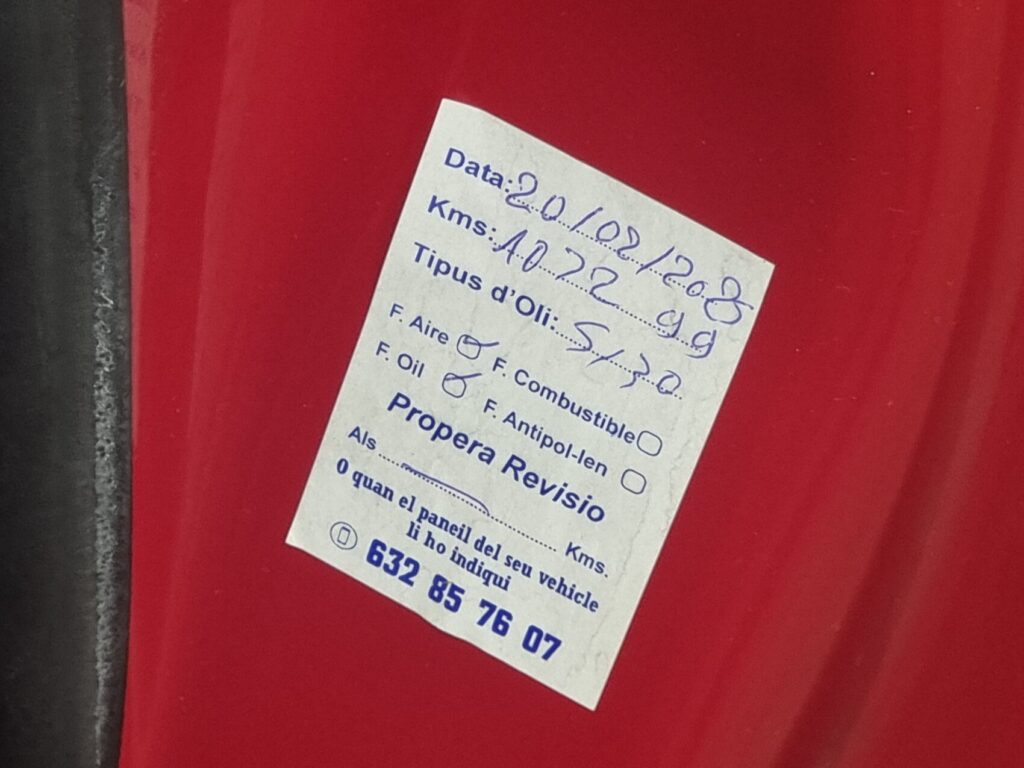 Data: 20/02/2025
Kms: 107299
Tipus d'Oli: 5/30
F. Aire F. Combustible
F. Oil F. Antipol-len
Propera Revisio
Als Kms.
O quan el paneil del seu vehicle
li ho indiqui
632 85 76 07